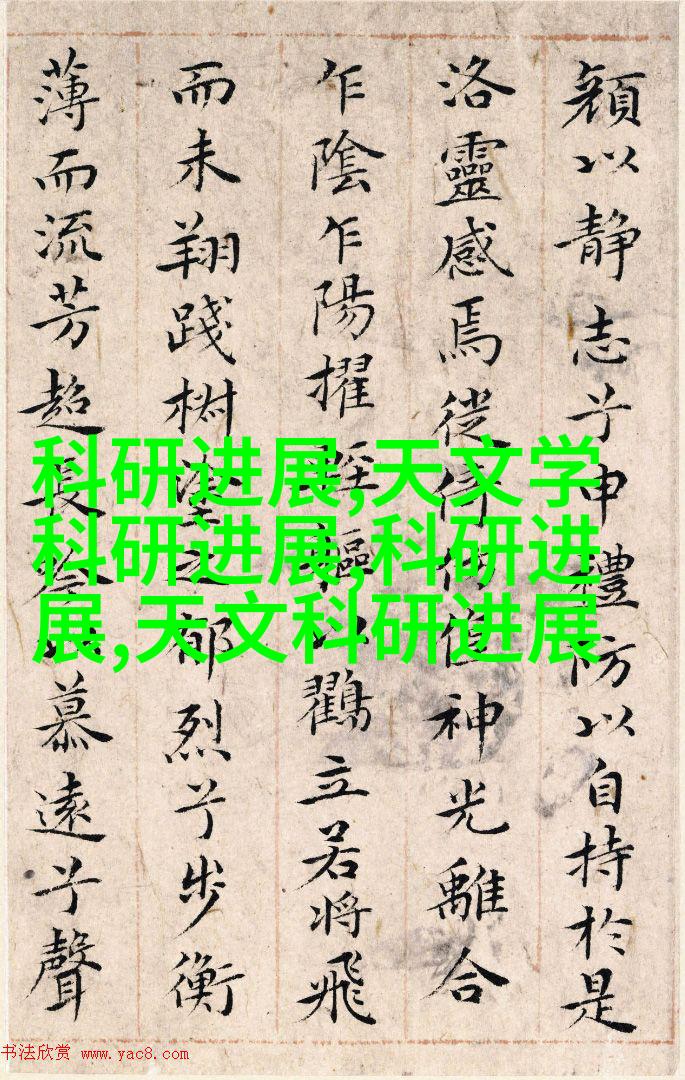 顔以静志兮申禮防以自持於是
洛靈感焉徙神光離合
乍陰乍陽擢軀以鶴立若將飛
而未翔踐椒塗之郁烈兮步衡
薄而流芳超長慕遠兮聲
科研进展,天文学
科研进展,科研进
展,天文科研进展
书法欣赏 www.yac8.com